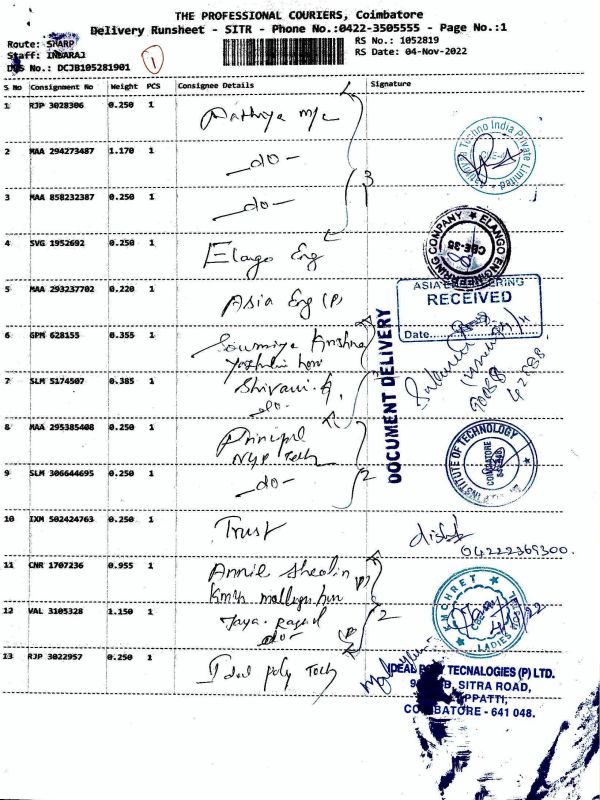 THE PROFESSIONAL COURIERS, Coimbatore
Delivery Runsheet - SITR - Phone No.:0422-3505555 - Page No.:1
Route: SHARP
RS No.: 1052819
Staff: INBARAJ
RS Date: 04-Nov-2022
DRS No.: DCJB105281901
1
S No Consignment No Weight PCS Consignee Details Signature
1 RJP 3028306 0.250 1
Techno India Private Limited
2 MAA 294273487 1.170 1 -do-
3 MAA 858232387 0.250 1 -do-
3
4 SVG 1952692 0.250 1 Elango Eng
ELANGO ENGINEERING COMPANY
CBE-35
5 MAA 293237702 0.220 1 Asia Eng (P)
ASIA ENGINEERING
RECEIVED
Date
DOCUMENT DELIVERY
6 GPM 628155 0.355 1 Soumiya Krishna
7 SLM 5174507 0.385 1 Shivani.
-do-
8 MAA 295385408 0.250 1 Principal
NGP Tech
INSTITUTE OF TECHNOLOGY
COIMBATORE
9 SLM 306644695 0.250 1 -do-
2
10 IXM 502424763 0.250 1 Trust
04222369300.
11 CNR 1707236 0.955 1 Annie Sheolin
12 VAL 3105328 1.150 1 Jaya.
-do-
2
LADIES
13 RJP 3022957 0.250 1 Ideal poly Tech
IDEAL POLY TECNALOGIES (P) LTD.
SITRA ROAD,
COIMBATORE - 641 048.